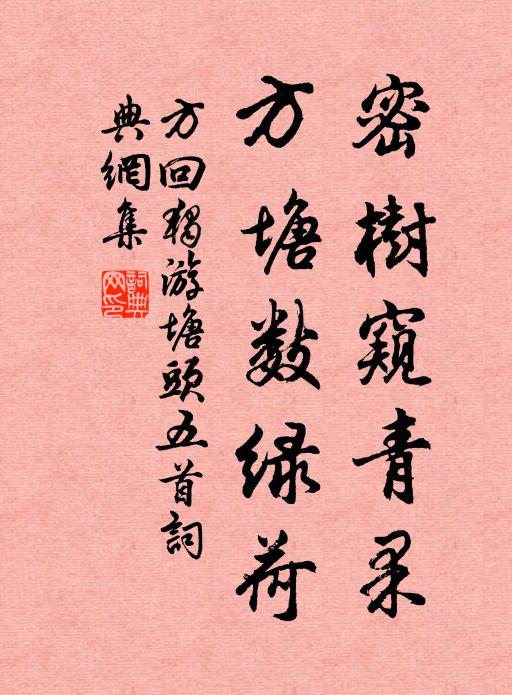 密樹窺青果
方塘數绿荷
方回獨游塘頭五首詞
典網集
詞典
网印